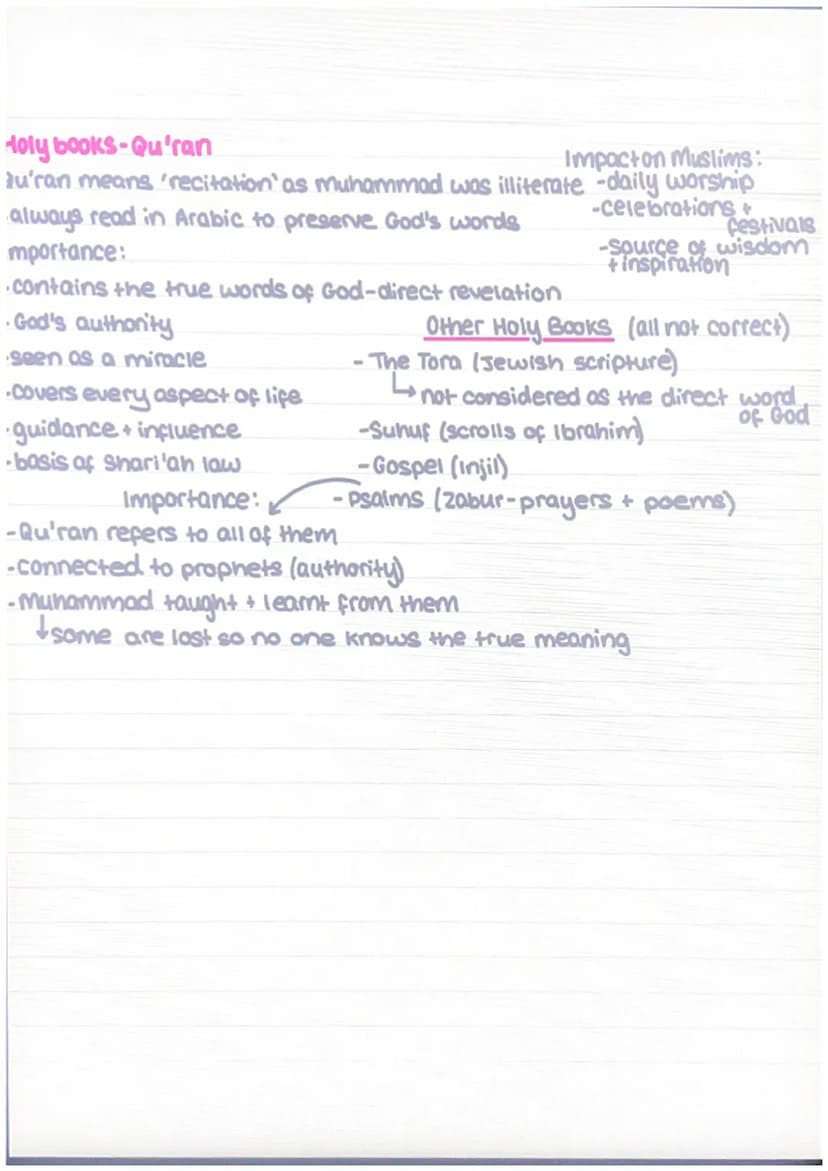 Holy books - Qu'ran
Qu'ran means 'recitation' as Muhammad was illiterate
always read in Arabic to preserve God's words
mportance:
· contains the true words of God - direct revelation
· God's authority
· seen as a miracle
· covers every aspect of life
· guidance + influence
· basis of Shari'ah law
Impact on Muslims:
- daily worship
- celebrations +
festivals
- source of wisdom
+ inspiration
Other Holy Books (all not correct)
- The Tora (Jewish scripture)
↳ not considered as the direct word
of God
- Suhuf (scrolls of Ibrahim)
- Gospel (Injil)
- Psalms (Zabur - prayers + poems)
Importance:
- Qu'ran refers to all of them
- connected to prophets (authority)
- Muhammad taught + learnt from them
↓ some are lost so no one knows the true meaning